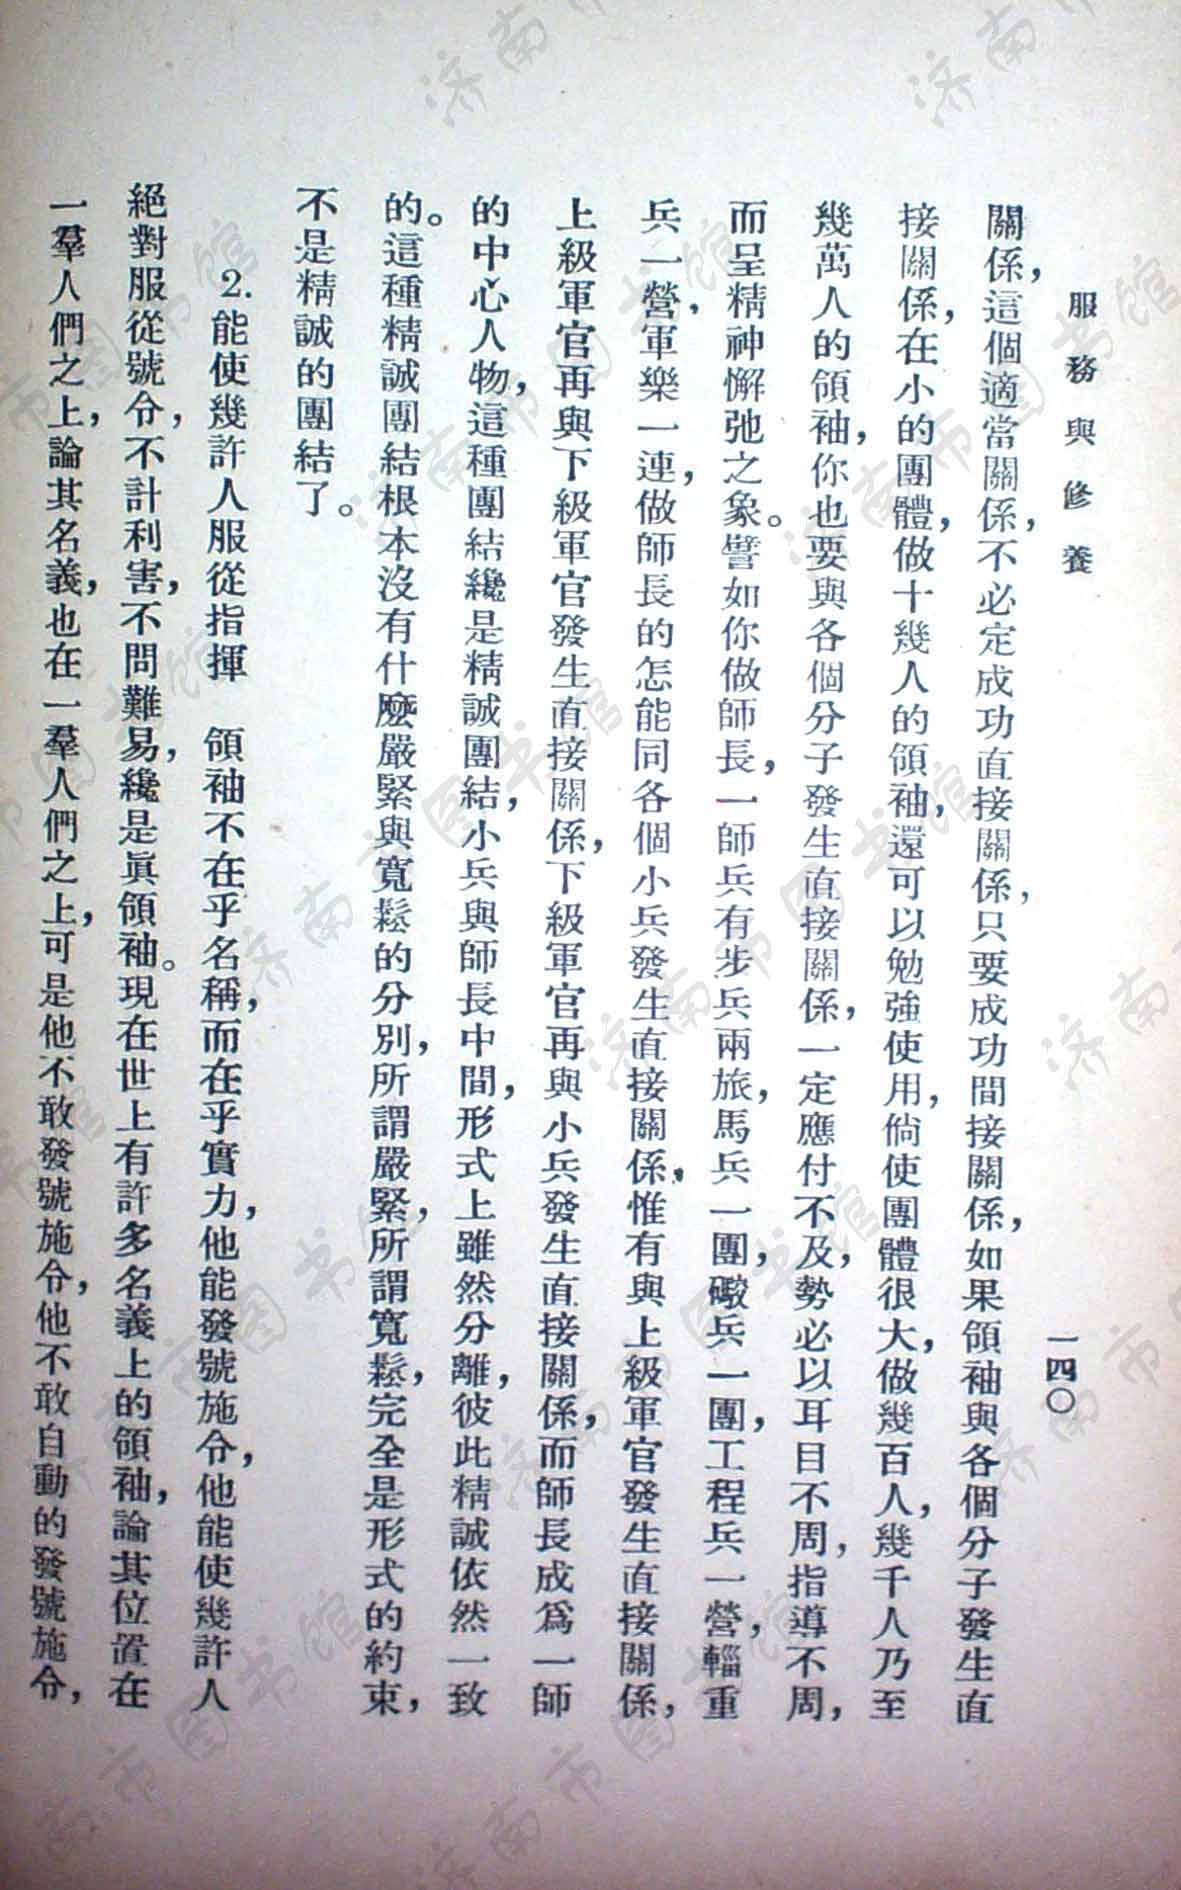 服務與修養
一四〇
關係，這個適當關係，不必定成功直接關係，只要成功間接關係，如果領袖與各個分子發生直
接關係，在小的團體，做十幾人的領袖，還可以勉強使用，倘使團體很大，做幾百人，幾千人乃至
幾萬人的領袖，你也要與各個分子發生直接關係，一定應付不及，勢必以耳目不周，指導不周，
而呈精神懈弛之象。譬如你做師長，一師兵有步兵兩旅，馬兵一團，礮兵一團，工程兵一營，輜重
兵一營，軍樂一連，做師長的怎能同各個小兵發生直接關係，惟有與上級軍官發生直接關係，
上級軍官再與下級軍官發生直接關係，下級軍官再與小兵發生直接關係，而師長成爲一師
的中心人物，這種團結纔是精誠團結，小兵與師長中間，形式上雖然分離，彼此精誠依然一致
的。這種精誠團結根本沒有什麼嚴緊與寬鬆的分別，所謂嚴緊，所謂寬鬆，完全是形式的約束，
不是精誠的團結了。
2. 能使幾許人服從指揮　領袖不在乎名稱，而在乎實力，他能發號施令，他能使幾許人
絕對服從號令，不計利害，不問難易，纔是眞領袖。現在世上有許多名義上的領袖，論其位置在
一羣人們之上，論其名義，也在一羣人們之上，可是他不敢發號施令，他不敢自動的發號施令，
济南市图书馆